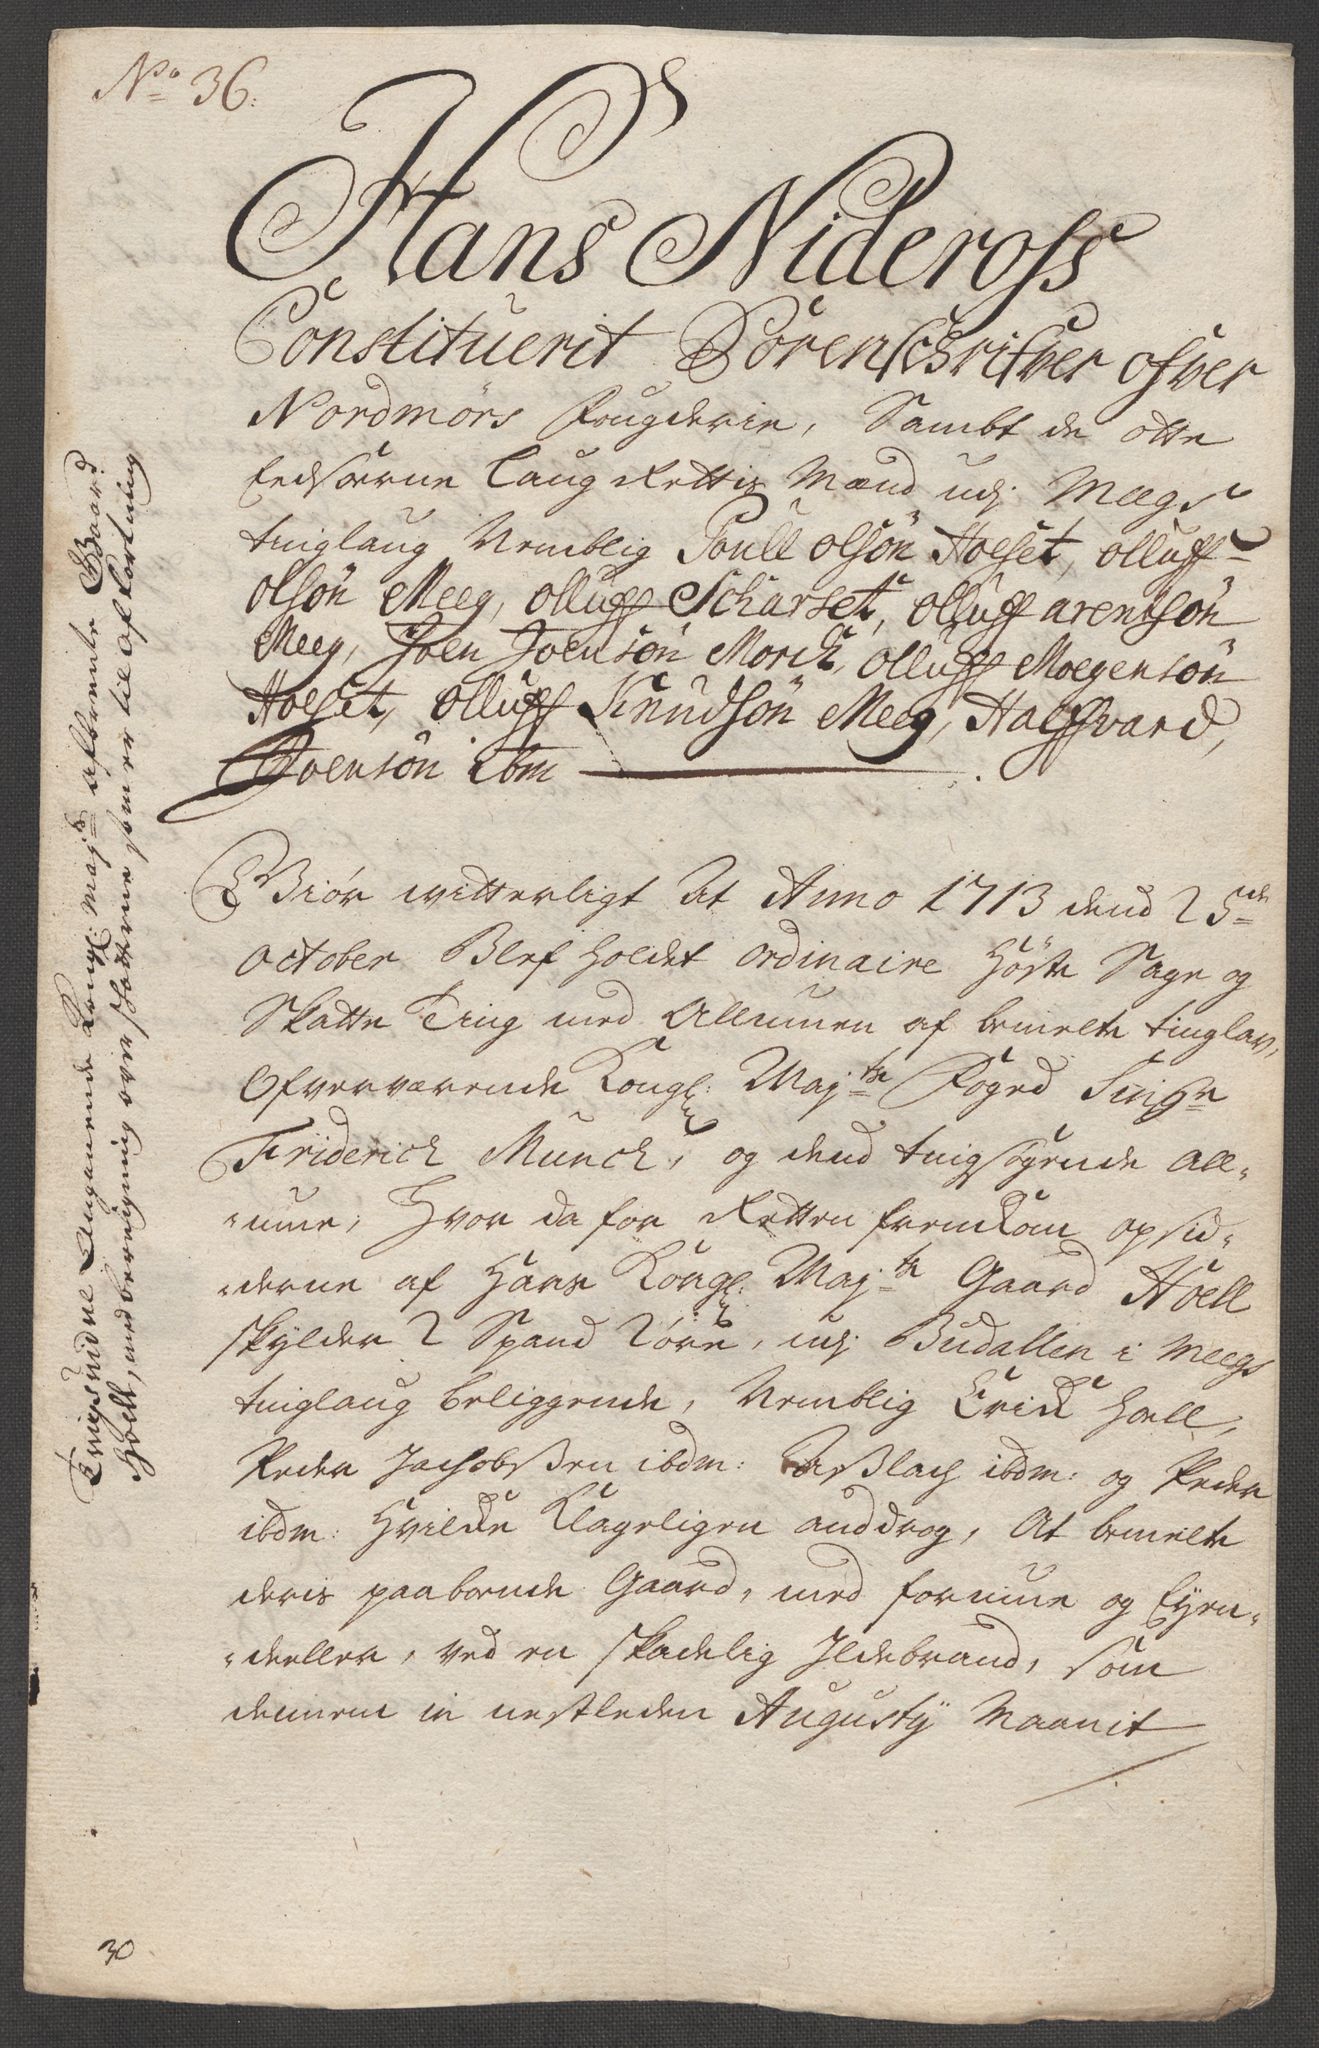 No 36.
Hans Nideross
Constituerit Sorenschrifver ofver
Nordmørs Fougderie, Sambt de otte
Eedsorne Laug Rettis Mænd udj Meegs
tinglaug Nemblig Poull Olsøn Hoeset, Olluff
Olsøn Meeg, Olluff Scharset, Olluff arentsøn
Meeg, Joen Joensøn Morch, Olluff Moegensøn
Hoeset, Olluff Knudsøn Meeg, Halffvard,
Joensøn ibm
Giør witterligt At Anno 1713 dend 25de
October Blef holdet ordinaire Høste Sage og
Skatte Ting med Allmuen af bemelte tinglav,
Ofverværende Kongl: Maj:ts Foged Sr
Friderich Munch, og dend tingsøgende All-
mue, Hvor da for Retten fremkom opsid-
derne af Hans Kongl: Maj:ts Gaard Hoell
skylder 2 Spand 2 øre, udj Budallen i Meegs
tinglaug beliggende, Nemblig Erick Hoell,
Peder Jachobsen ibdm: Aslach ibdm: og Peder
ibdm: Hvilcke Klageligen anddrog, At bemelte
deris paaboende Gaard, med formue og Eyen-
deeller, ved en skadelig Ildebrand, som
dennem in nestleden Augusty Maanit
Tingsvidne Angaaende Kongl: Maj:ts afbrente Gaard
Hoell, med beregning over skatterne som er til afkortning
30